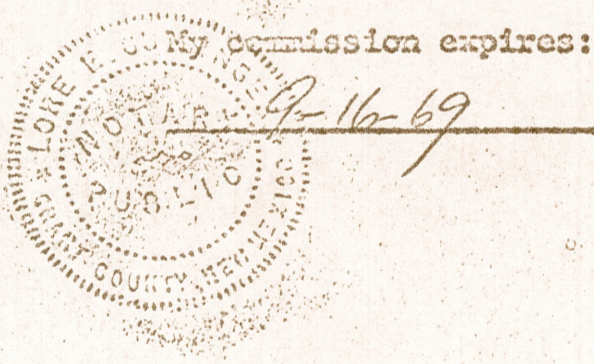 My commission expires:
9-16-69
LORE E.
NOTARY
PUBLIC
GRANT COUNTY, NEW MEXICO